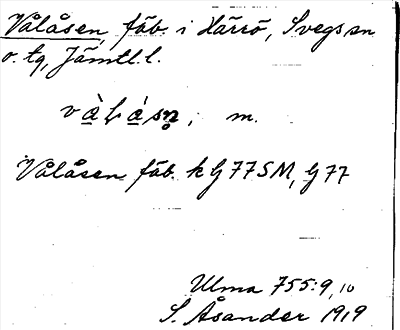 Vålåsen, fäb. i Härrö, Svegs sn
o. tg, Jämtl. l.
m.
Vålåsen fäb. k G77SM, G77
Ulma 755:9, 10
S. Åsander 1919